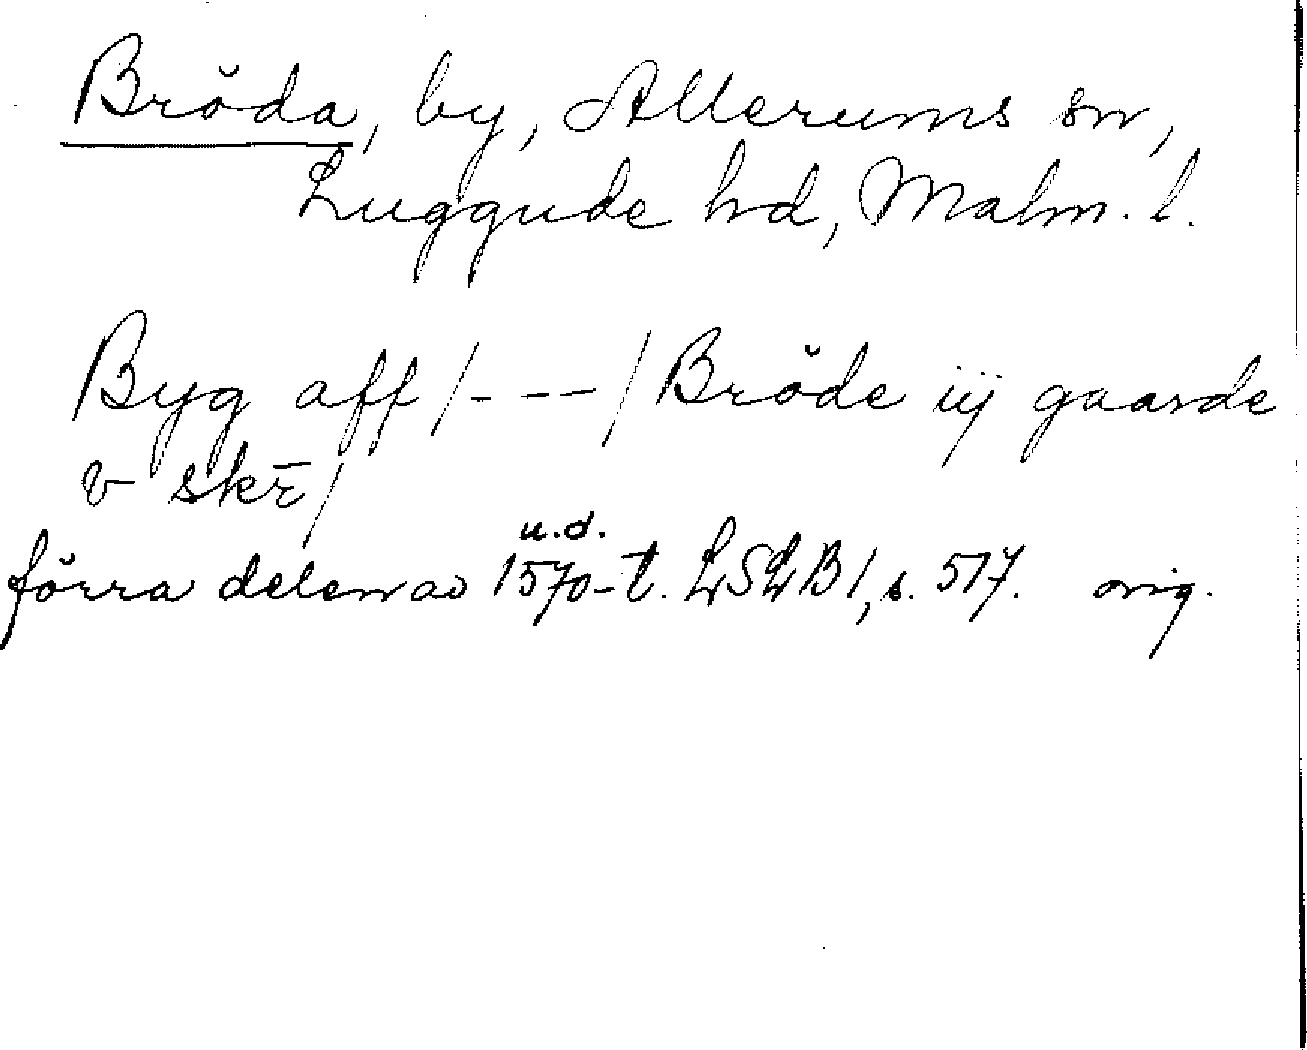 Bröda, by, Allerums sn,
Luggude hd, Malm. l.
Byg aff /---/ Bröde iij gaarde
v skr̄/
u.d.
förra delen av 1570-t. LSLB 1, s. 517. orig.